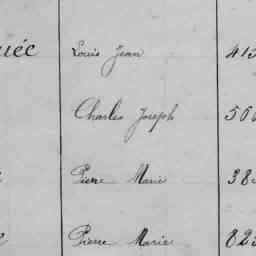 uéc Louis Jean 413
Charles Joseph 50
Pierre Marie 38
Pierre Marie 823